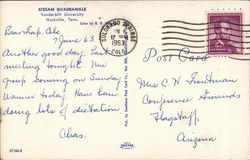 KISSAM QUADRANGLE
Vanderbilt University
Nashville, Tenn.
Color by
COLORADO SPRINGS
1963
COLO.
June 63
Another good day. Last
meeting tonight. New
group coming on Sunday
warmer today. Have been
doing lots of dictation
Chas.
Post Card
Mrs C. H.
Conference Grounds
Flagstaff,
Arizona